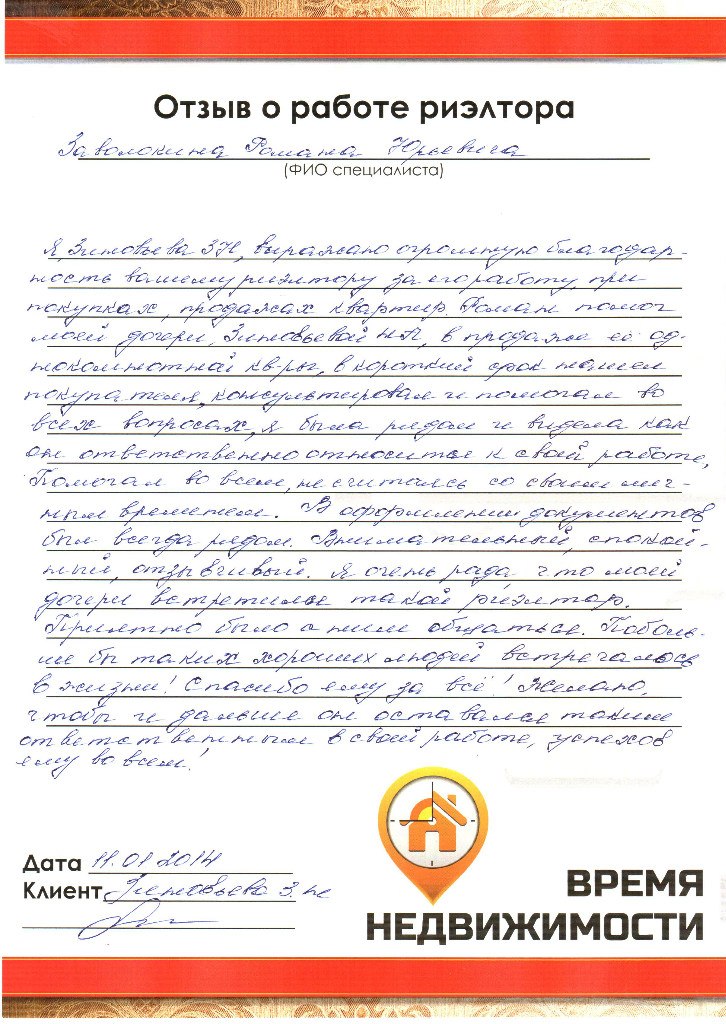 Отзыв о работе риэлтора
Заволокина Романа Юрьевича
(ФИО специалиста)
Я, Зиновьева З.Н, выражаю огромную благодар-
ность вашему риэлтору за его работу при
покупках, продажах квартир. Роман помог
моей дочери, Зиновьевой Н.П, в продаже её од-
нокомнатной кв-ры, в короткий срок нашел
покупателя, консультировал и помогал во
всех вопросах, я была рядом и видела как
он ответственно относится к своей работе,
Помогал во всем, не считаясь со своим лич-
ным временем. В оформлении документов
был всегда рядом. Внимательный, спокой-
ный, отзывчивый. Я очень рада, что моей
дочери встретился такой риэлтор.
Приятно было с ним общаться. Поболь-
ше бы таких хороших людей встречалось
в жизни! Спасибо ему за всё! Желаю,
чтобы и дальше он оставался таким
ответственным в своей работе, успехов
ему во всем!
Дата 11.01 2014
Клиент Зиновьева З.Н
ВРЕМЯ
НЕДВИЖИМОСТИ